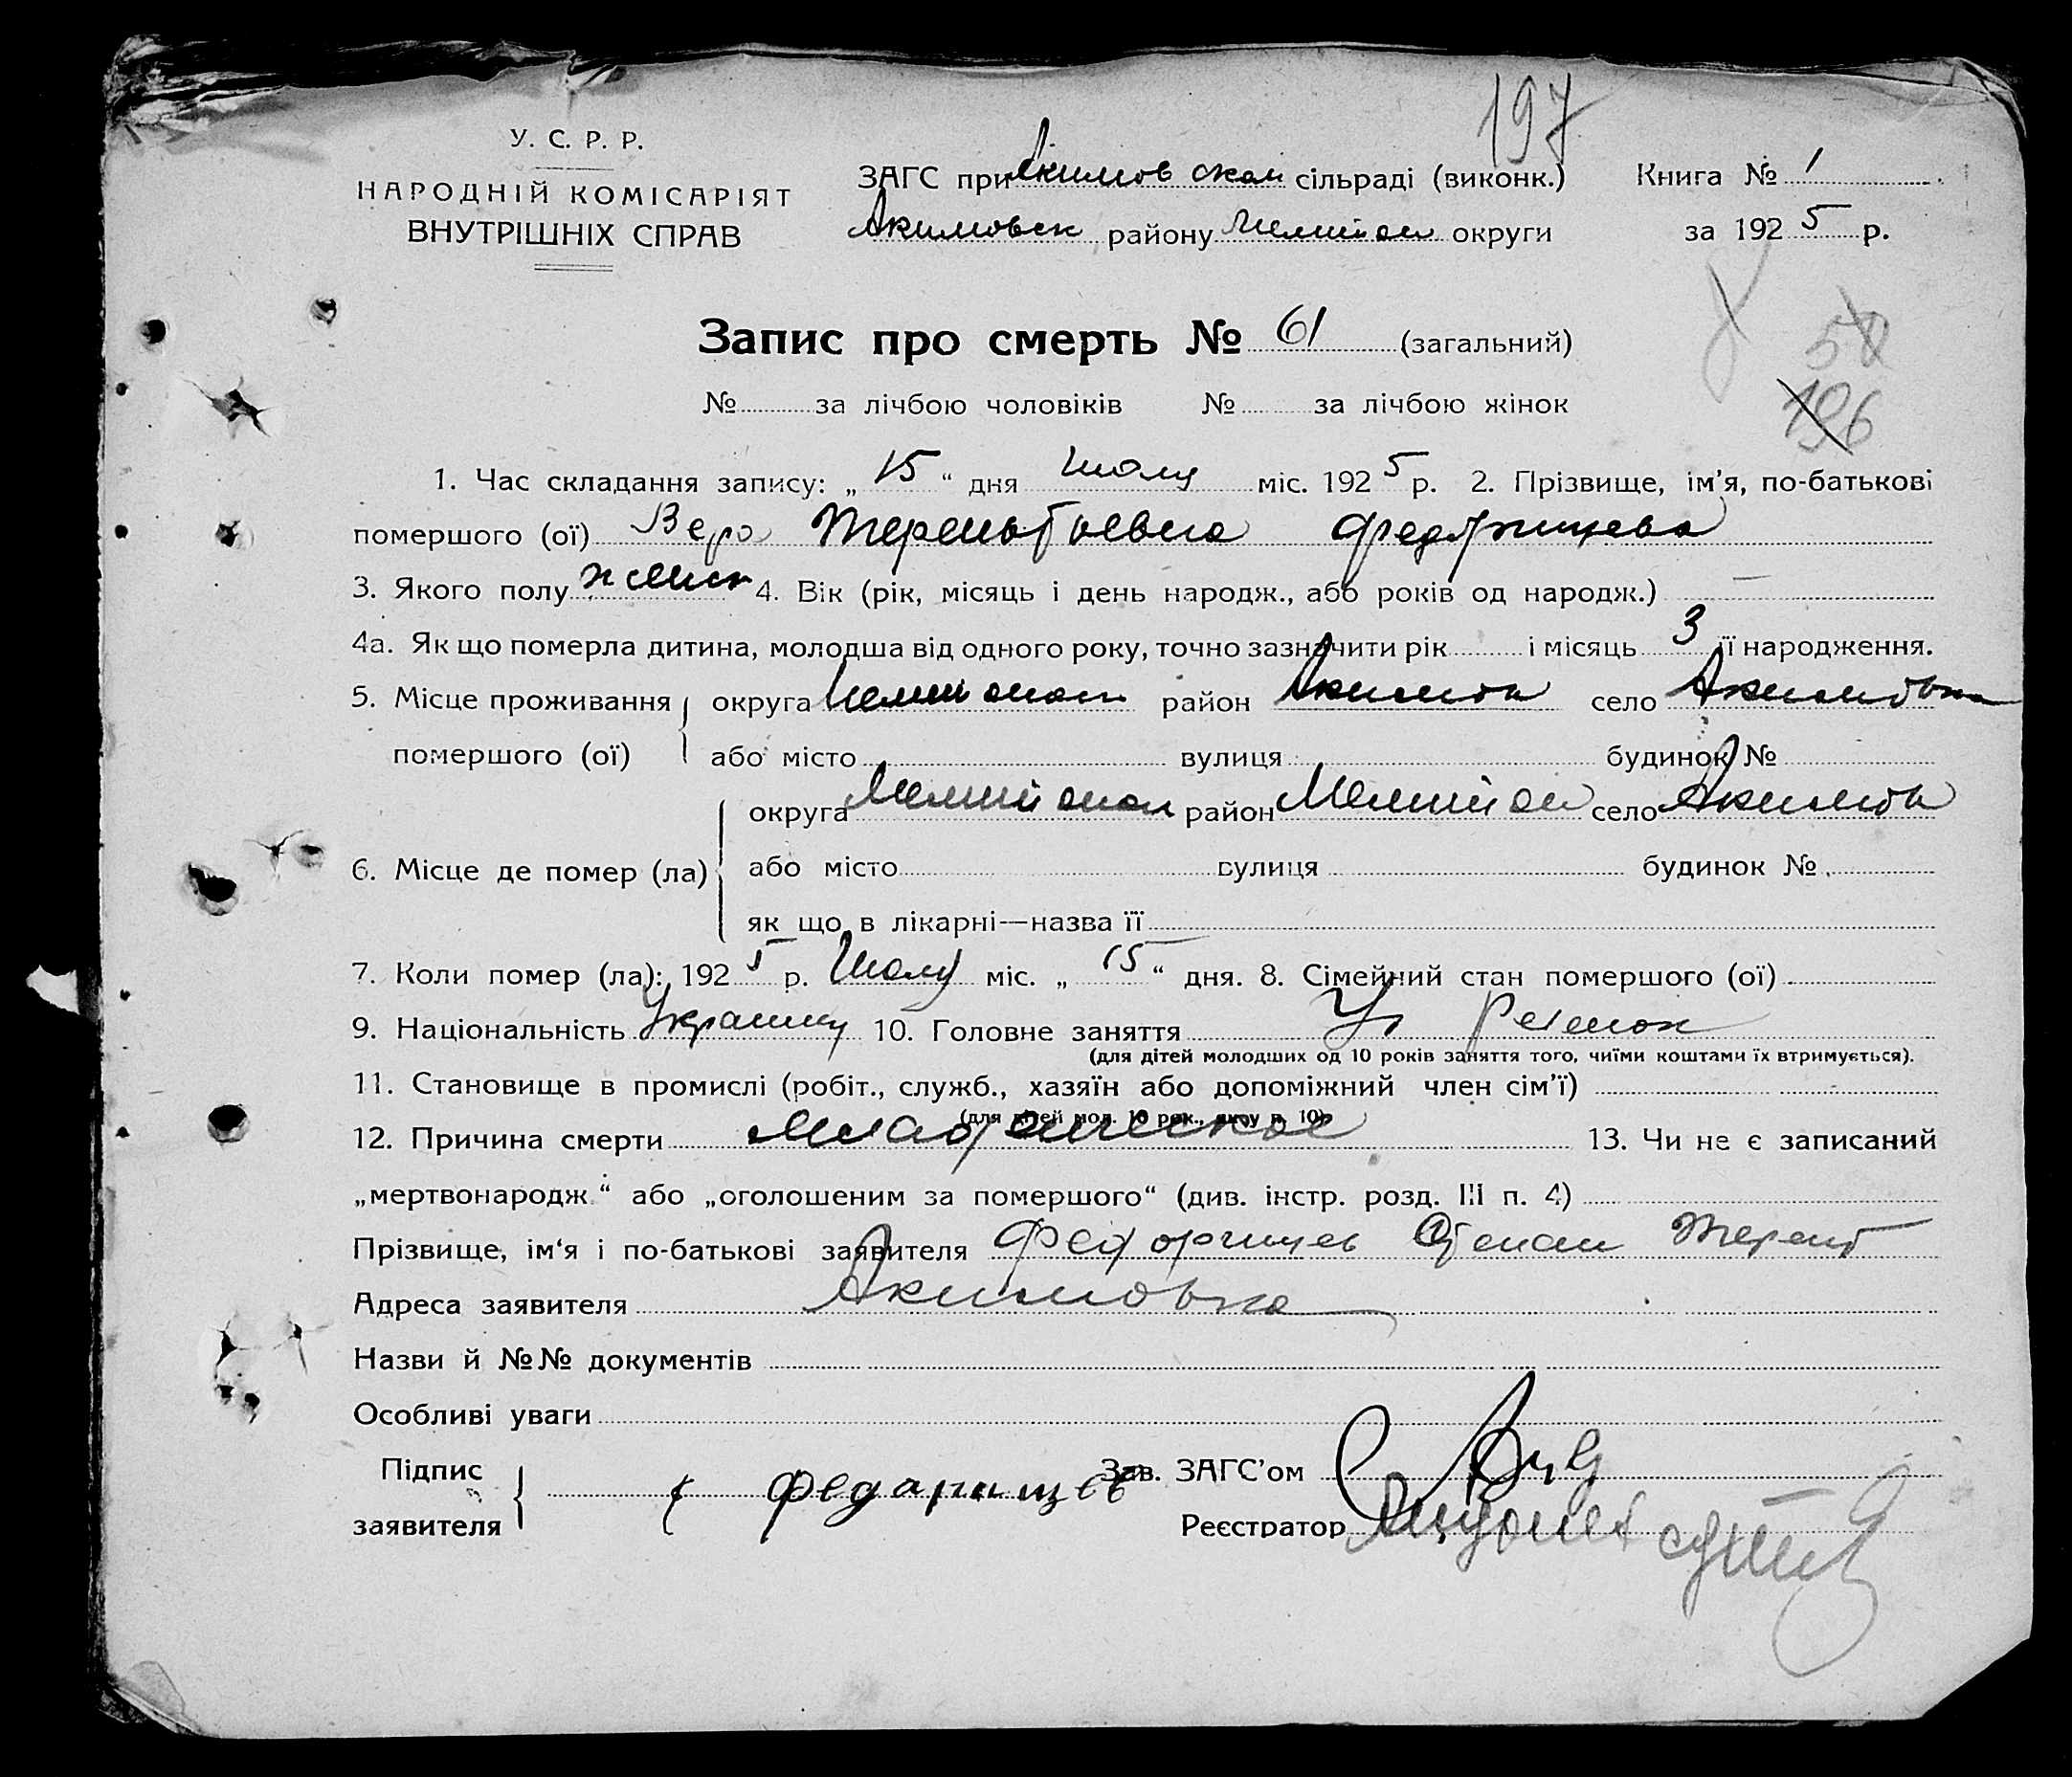 197
У. С. Р. Р.
НАРОДНІЙ КОМІСАРІЯТ
ВНУТРІШНІХ СПРАВ
ЗАГС при Акимовской сільраді (виконк.)
Акимовск району Мелитоп округи
Книга № 1
за 1925 р.
Запис про смерть № 61 (загальний)
50
196
№ за лічбою чоловіків № за лічбою жінок
1. Час складання запису: „15“ дня Июля міс. 1925 р. 2. Прізвище, ім’я, по-батькові
помершого (ої) Вера Терентьевна
3. Якого полу женск 4. Вік (рік, місяць і день народж., або років од народж.) —
4а. Як що померла дитина, молодша від одного року, точно зазначити рік і місяць 3 її народження.
5. Місце проживання округа Мелитопол район Акимов село Акимовка
помершого (ої) або місто вулиця будинок №
округа Мелитопол район Мелитоп село Акимов
6. Місце де помер (ла) або місто вулиця будинок №
як що в лікарні—назва її
7. Коли помер (ла): 1925 р. Июля міс. „15“ дня. 8. Сімейний стан помершого (ої)
9. Національність 10. Головне заняття
(для дітей молодших од 10 років заняття того, чиїми коштами їх втримується).
11. Становище в промислі (робіт., служб., хазяїн або допоміжний член сім’ї)
(для дітей мол. 10 рок., дику п. 10)
12. Причина смерти 13. Чи не є записаний
„мертвонародж.“ або „оголошеним за помершого“ (див. інстр. розд. III п. 4)
Прізвище, ім‘я і по-батькові заявителя Степан Терент
Адреса заявителя Акимовка
Назви й №№ документів
Особливі уваги
Підпис
заявителя Федарищев
Зав. ЗАГС’ом
Реєстратор